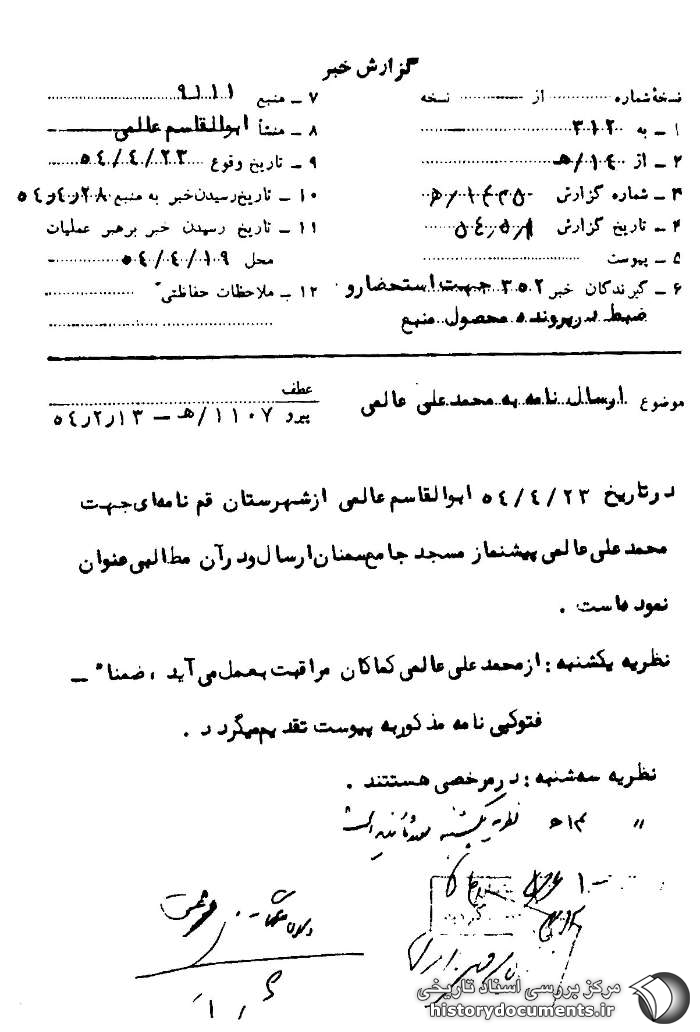 گزارش خبر
نسخهٔ شماره ............ از ............ نسخه
۱ ـ به ۳۱۲
۲ ـ از ۱۴/ه‍
۳ ـ شماره گزارش
۴ ـ تاریخ گزارش
۵ ـ پیوست
۶ ـ گیرندگان خبر ۳۵۲ جهت استحضار و
ضبط در پرونده محصول منبع
۷ ـ منبع ۹۱۱۱
۸ ـ منشأ ابوالقاسم عالمی
۹ ـ تاریخ وقوع ۵۴/۴/۲۳
۱۰ ـ تاریخ رسیدن خبر به منبع ۵۴٫۴٫۲۸
۱۱ ـ تاریخ رسیدن خبر برهبر عملیات
محل ۵۴/۴/۱۹
۱۲ ـ ملاحظات حفاظتی
موضوع ارسال نامه به محمد علی عالمی
عطف
پیرو ۱۱۰۷/ه‍ ـ ۵۴٫۲٫۱۳
در تاریخ ۵۴/۴/۲۳ ابوالقاسم عالمی از شهرستان قم نامه‌ای جهت
محمد علی عالمی پیشنماز مسجد جامع سمنان ارسال و در آن مطالبی عنوان
نموده است .
نظریه یکشنبه : از محمد علی عالمی کماکان مراقبت بعمل می‌آید ، ضمنا" ـ
فتوکپی نامه مذکور به پیوست تقدیم میگردد .
نظریه سه‌شنبه : در مرخصی هستتند .
" ۱۴ه‍ نظریه یکشنبه مورد تائید است
مرکز بررسی اسناد تاریخی
historydocuments.ir